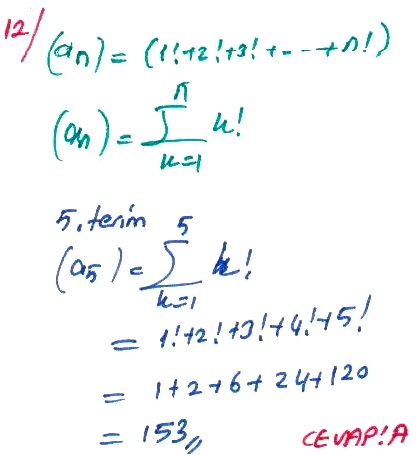 12/ (an) = (1!+2!+3!+---+n!)
(an) = n∑k=1 k!
5.terim
(a5) = 5∑k=1 k!
= 1!+2!+3!+4!+5!
= 1+2+6+24+120
= 153,,
CEVAP!A